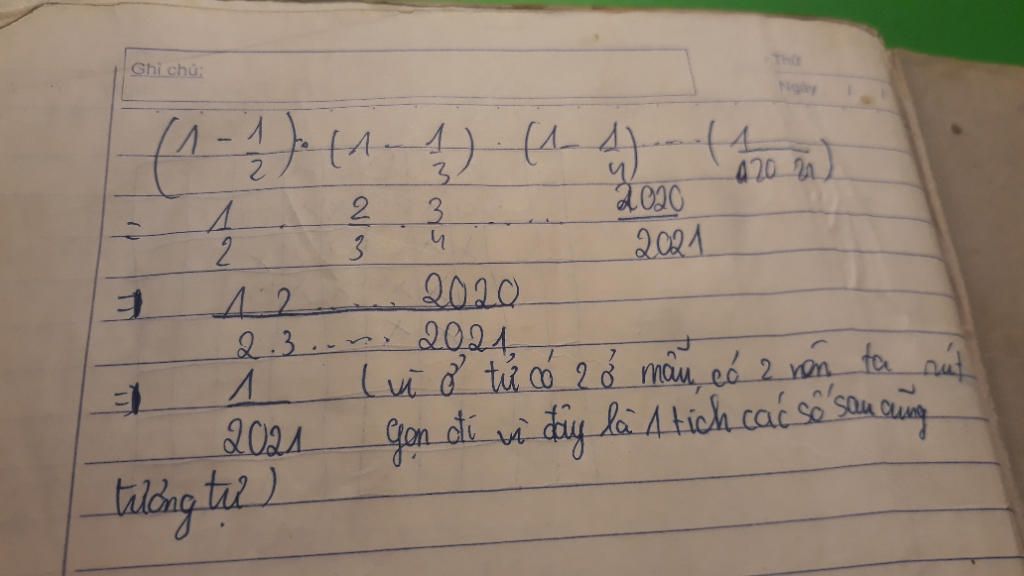 Ghi chú:
Thứ
Ngày / /
(1 - 1/2) . (1 - 1/3) . (1 - 1/4) ..... (1/2021)
= 1/2 . 2/3 . 3/4 ..... 2020/2021
= 1.2.....2020 / 2.3.....2021
= 1/2021 (vì ở tử có 2 ở mẫu có 2 nên ta rút
gọn đi vì đây là 1 tích các số sau cũng
tương tự)